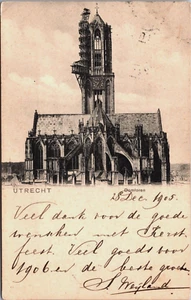 UTRECHT
Domtoren
25 Dec. 1905.
Veel dank voor de goede
wenschen met Kerst
feest. Veel goeds voor
1906 en de beste groete
S. Weyland